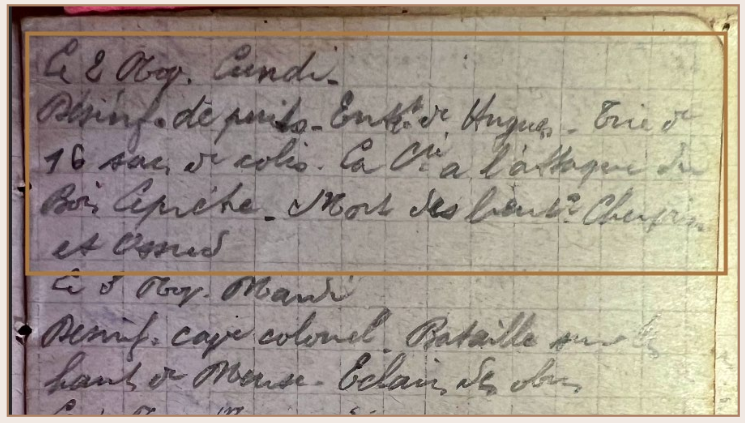 Le 2 Nov. Lundi -
Désinf. de puits - Entt de Hugues - Trie de
16 sacs de colis - La Cie a l'attaque du
Bois Leprêtre - Mort des lieutts
et
Le 3 Nov. Mardi
Désinf. cage colonel. Bataille sur les
hauts de Meuse - Eclairs des obus